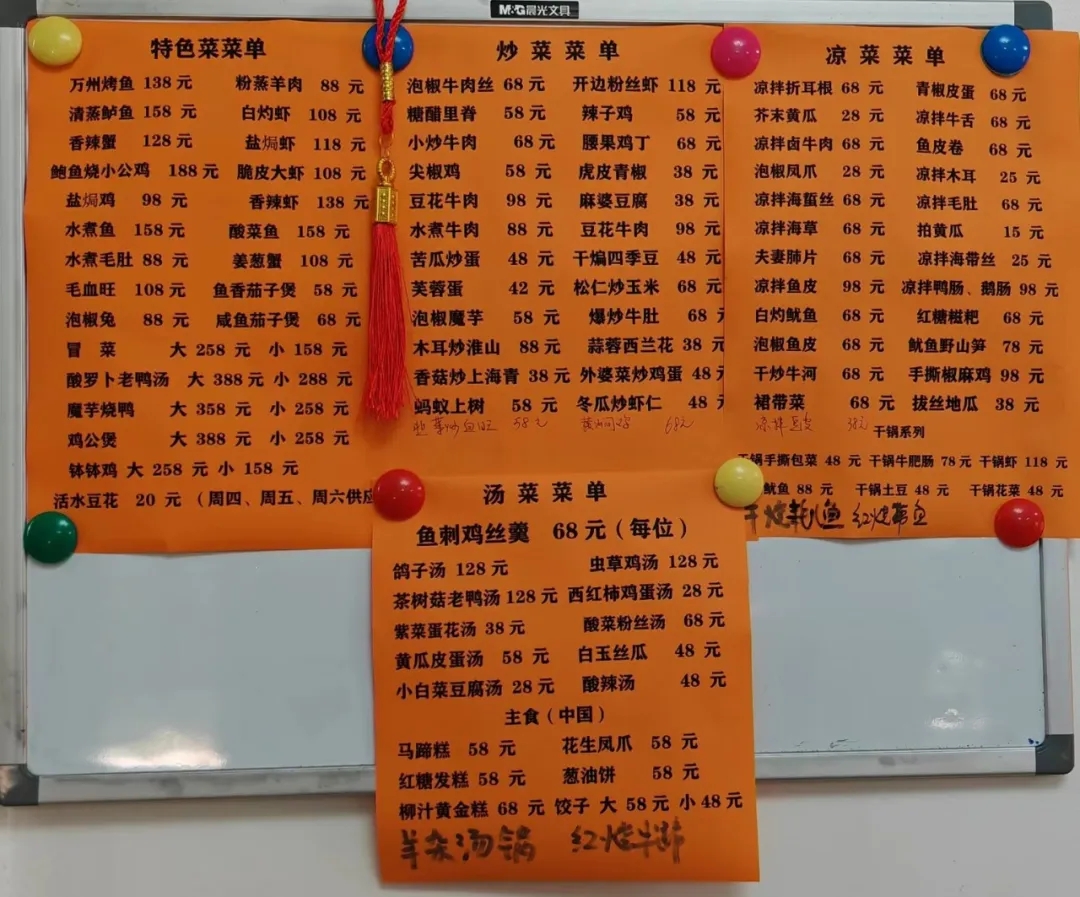 M&G晨光文具
特色菜菜单
万州烤鱼 138元 粉蒸羊肉 88元
清蒸鲈鱼 158元 白灼虾 108元
香辣蟹 128元 盐焗虾 118元
鲍鱼烧小公鸡 188元 脆皮大虾 108元
盐焗鸡 98元 香辣虾 138元
水煮鱼 158元 酸菜鱼 158元
水煮毛肚 88元 姜葱蟹 108元
毛血旺 108元 鱼香茄子煲 58元
泡椒兔 88元 咸鱼茄子煲 68元
冒菜 大 258元 小 158元
酸罗卜老鸭汤 大 388元 小 288元
魔芋烧鸭 大 358元 小 258元
鸡公煲 大 388元 小 258元
钵钵鸡 大 258元 小 158元
活水豆花 20元 (周四、周五、周六供应
炒菜菜单
泡椒牛肉丝 68元 开边粉丝虾 118元
糖醋里脊 58元 辣子鸡 58元
小炒牛肉 68元 腰果鸡丁 68元
尖椒鸡 58元 虎皮青椒 38元
豆花牛肉 98元 麻婆豆腐 38元
水煮牛肉 88元 豆花牛肉 98元
苦瓜炒蛋 48元 干煸四季豆 48元
芙蓉蛋 42元 松仁炒玉米 68元
泡椒魔芋 58元 爆炒牛肚 68元
木耳炒淮山 88元 蒜蓉西兰花 38元
香菇炒上海青 38元 外婆菜炒鸡蛋 48元
蚂蚁上树 58元 冬瓜炒虾仁 48元
韭菜炒血旺 58元 68元
凉菜菜单
凉拌折耳根 68元 青椒皮蛋 68元
芥末黄瓜 28元 凉拌牛舌 68元
凉拌卤牛肉 68元 鱼皮卷 68元
泡椒凤爪 28元 凉拌木耳 25元
凉拌海蜇丝 68元 凉拌毛肚 68元
凉拌海草 68元 拍黄瓜 15元
夫妻肺片 68元 凉拌海带丝 25元
凉拌鱼皮 98元 凉拌鸭肠、鹅肠 98元
白灼鱿鱼 68元 红糖糍粑 68元
泡椒鱼皮 68元 鱿鱼野山笋 78元
干炒牛河 68元 手撕椒麻鸡 98元
裙带菜 68元 拔丝地瓜 38元
凉拌 38元 干锅系列
干锅手撕包菜 48元 干锅牛肥肠 78元 干锅虾 118元
鱿鱼 88元 干锅土豆 48元 干锅花菜 48元
红烧 鱼
汤菜菜单
鱼刺鸡丝羹 68元(每位)
鸽子汤 128元 虫草鸡汤 128元
茶树菇老鸭汤 128元 西红柿鸡蛋汤 28元
紫菜蛋花汤 38元 酸菜粉丝汤 68元
黄瓜皮蛋汤 58元 白玉丝瓜 48元
小白菜豆腐汤 28元 酸辣汤 48元
主食(中国)
马蹄糕 58元 花生凤爪 58元
红糖发糕 58元 葱油饼 58元
柳汁黄金糕 68元 饺子 大 58元 小 48元
羊杂汤锅 红烧牛蹄